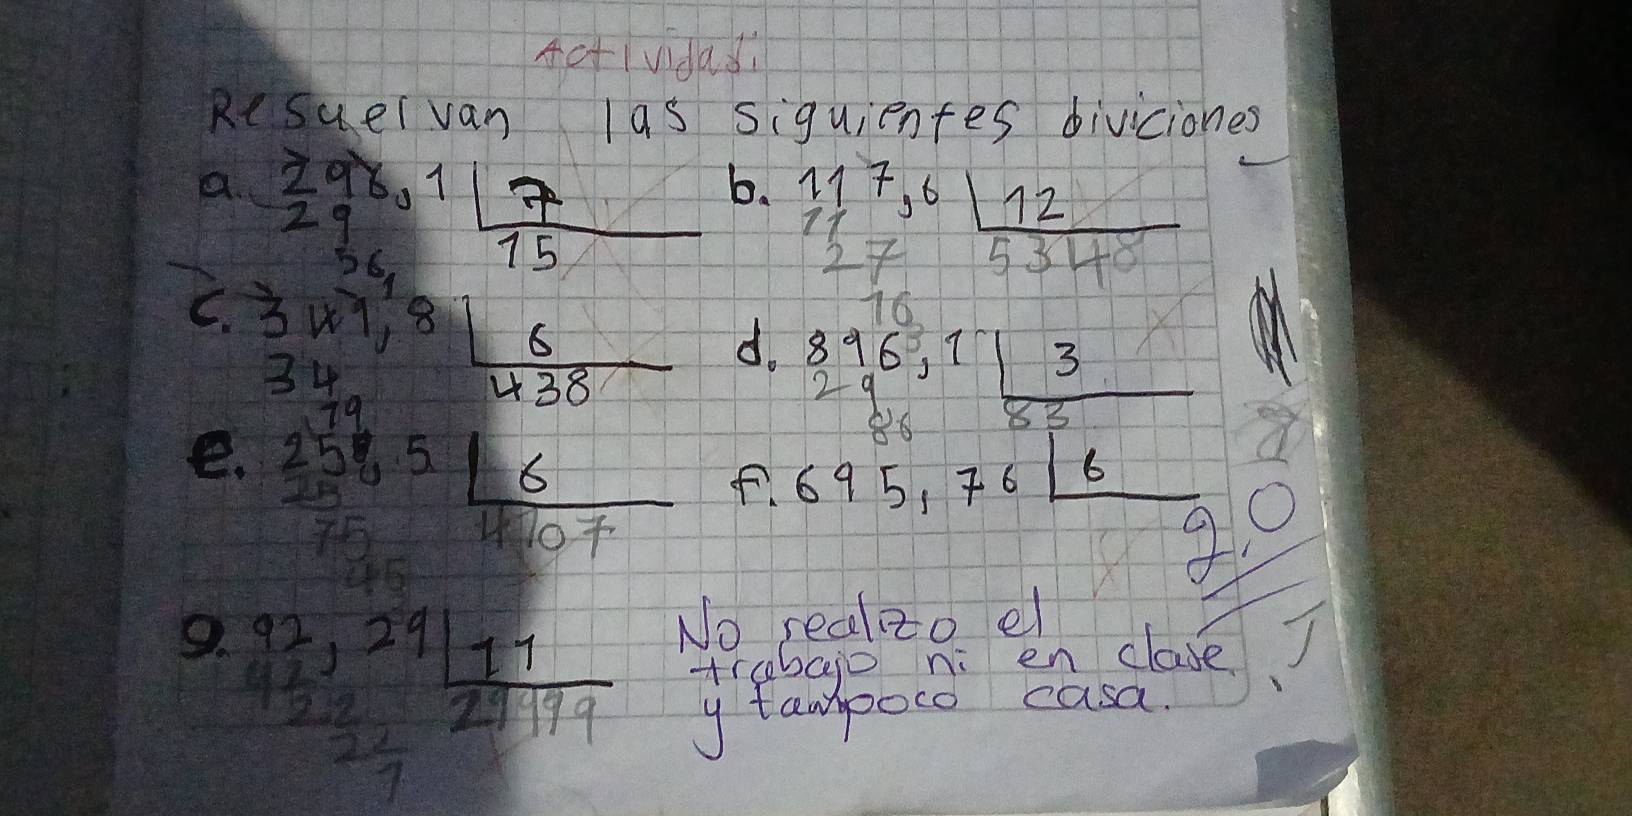 Actividad:
Resuelvan las siguientes diviciones
a. 296,1 7 b. 117,6 12
29 15 11 5348
56,1 27
16
c. 349,8 6 d. 896,1 3
34 438 29 83
79 86
e. 25 ,5 6 f. 695,76 6
25 4707
75
45
2.0
g. 92,29 11 No realizo el
92 29999 trabajo ni en clase
22 y tampoco casa.
22
7